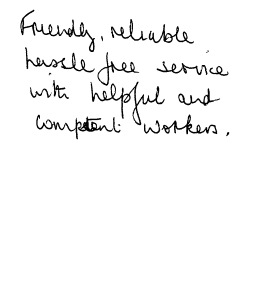 Friendly, reliable
hassle free service
with helpful and
competent workers.